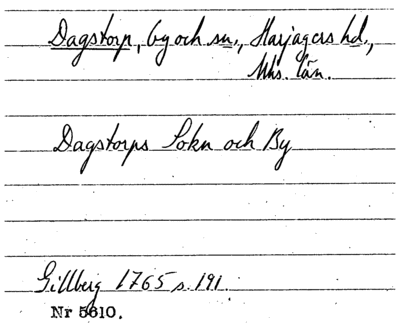 Dagstorp, by och sn., Harjagers hd.,
Mhs. län.
Dagstorps Sokn och By
Gillberg 1765 s. 191.
Nr 5610.